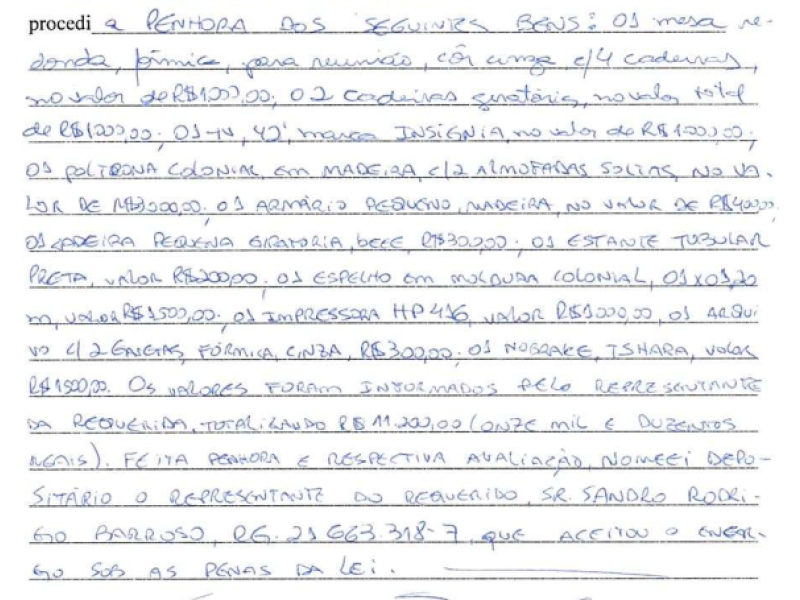 procedi a PENHORA DOS SEGUINTES BENS: 01 mesa re-
donda, fórmica, para reunião, côr cinza c/4 cadeiras,
no valor de R$1.000,00; 02 cadeiras giratória, no valor total
de R$1000,00; 01 TV, 42', marca INSIGNIA, no valor de R$1.000,00;
01 POLTRONA COLONIAL EM MADEIRA, C/2 ALMOFADAS SOLTAS, NO VA-
LOR DE R$3000,00; 01 ARMÁRIO PEQUENO, MADEIRA, NO VALOR DE R$400,00;
01 CADEIRA PEQUENA GIRATORIA, BEGE, R$300,00; 01 ESTANTE TUBULAR
PRETA, VALOR R$200,00; 01 ESPELHO EM MOLDURA COLONIAL, 01X01,20
m, VALOR R$1500,00; 01 IMPRESSORA HP 416, VALOR R$1000,00, 01 ARQUI
VO C/2 GAVETAS, FÓRMICA, CINZA, R$300,00; 01 NOBREAK, TSHARA, VALOR
R$1500,00. OS VALORES FORAM INFORMADOS PELO REPRESENTANTE
DA REQUERIDA, TOTALIZANDO R$ 11.200,00 (ONZE MIL E DUZENTOS
REAIS). FEITA PENHORA E RESPECTIVA AVALIAÇÃO, NOMEEI DEPO-
SITÁRIO O REPRESENTANTE DO REQUERIDO, SR. SANDRO RODRI-
GO BARROSO, RG. 21 663.318-7, QUE ACEITOU O ENCAR-
GO SOB AS PENAS DA LEI.